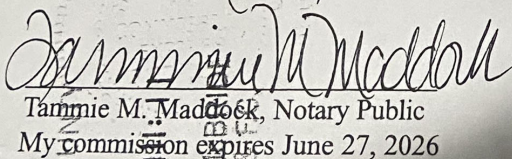 Tammie M Maddock
Tammie M. Maddock, Notary Public
My commission expires June 27, 2026